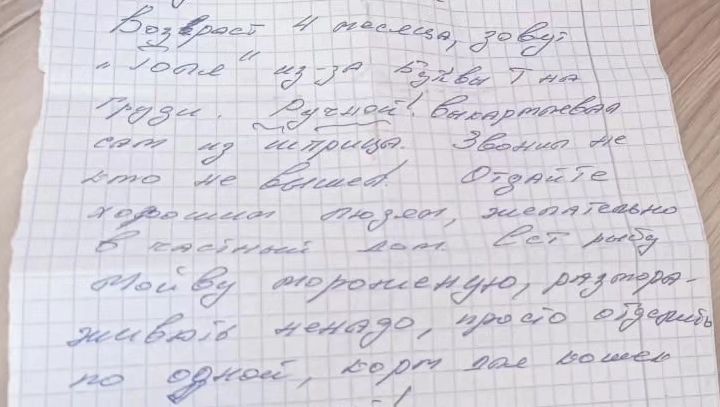 Возраст 4 месяца, зовут
" Тоша " из-за буквы Т на
груди. Ручной! выкармлевал
сам из шприца. Звонил не
кто не вышел! Отдайте
хорошим людям, желательно
в частный дом. Ест рыбу
Мойву мороженую, размора-
живать ненадо, просто отделить
по одной, корм для кошек